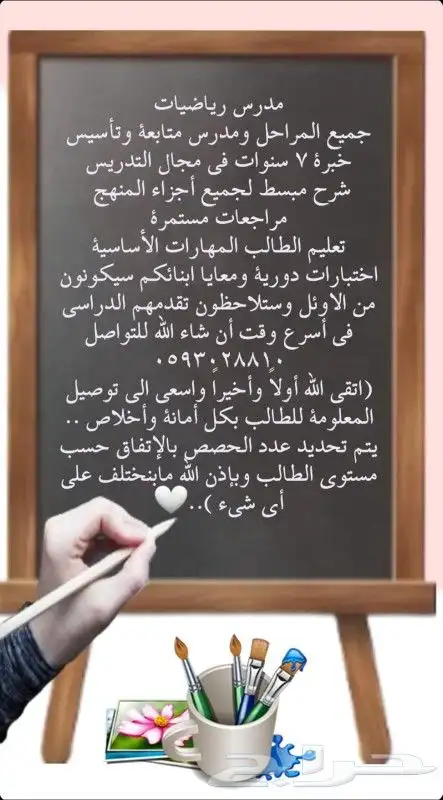 مدرس رياضيات
جميع المراحل ومدرس متابعة وتأسيس
خبرة ٧ سنوات فى مجال التدريس
شرح مبسط لجميع أجزاء المنهج
مراجعات مستمرة
تعليم الطالب المهارات الأساسية
اختبارات دورية ومعايا ابنائكم سيكونون
من الاوئل وستلاحظون تقدمهم الدراسى
فى أسرع وقت أن شاء الله للتواصل
٠٥٩٣٠٢٨٨١٠
(اتقى الله أولاً وأخيراً واسعى الى توصيل
المعلومة للطالب بكل أمانة وأخلاص ..
يتم تحديد عدد الحصص بالإتفاق حسب
مستوى الطالب وبإذن الله مابنختلف على
أى شىء )..🤍
حراج